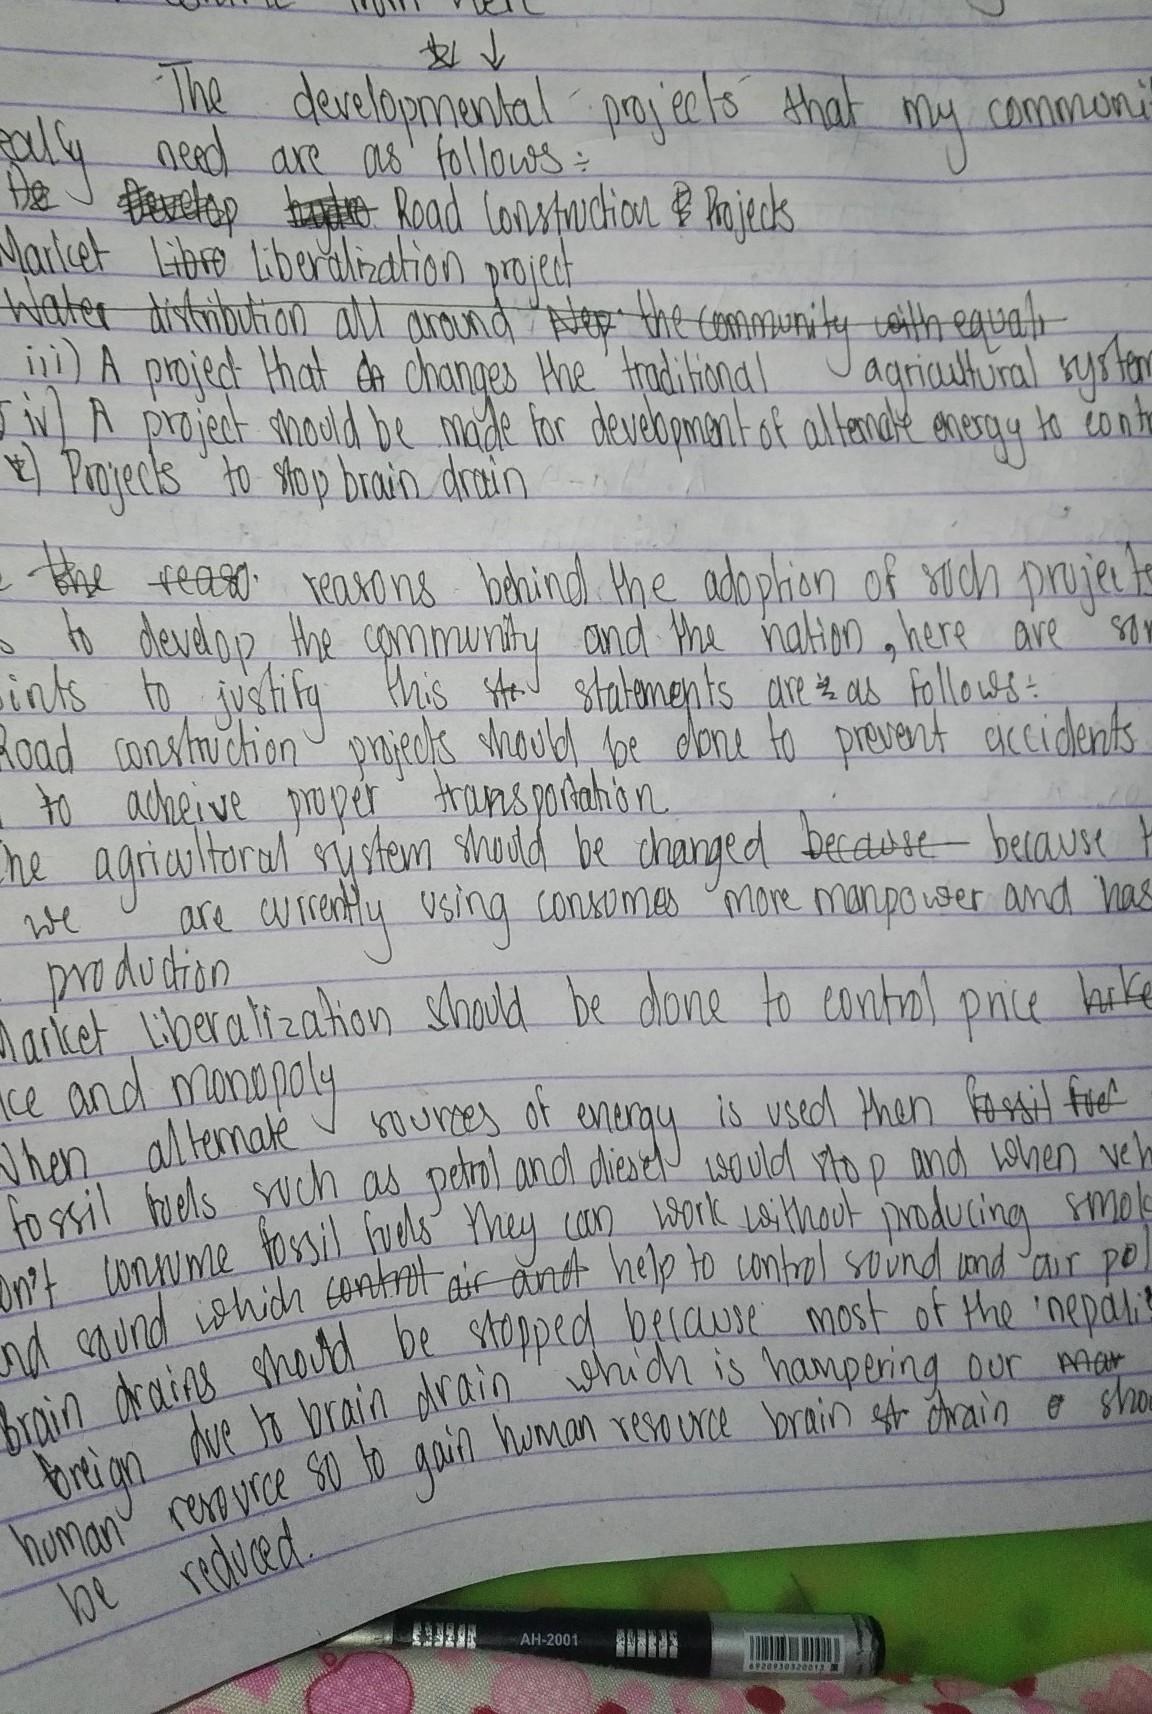 from here
The developmental projects that my communi
eally need are as follows:-
De Develop hydro Road Construction & Projects
Market Libro liberalization project
Water distribution all around Nep the community with equali
iii) A project that ch changes the traditional agricultural system
iv) A project should be made for development of alternate energy to contr
v) Projects to stop brain drain
the reaso. reasons behind the adoption of such projects
to develop the community and the nation, here are som
ints to justify this ste statements are as follows:-
Road construction projects should be done to prevent accidents
to acheive proper transportation
he agricultural system should be changed because because t
we are currently using consumes more manpower and has
production
Market liberalization should be done to control price hike
ice and monopoly
When alternate sources of energy is used then fossil fuel
fossil fuels such as petrol and diesel would stop and when veh
on't consume fossil fuels they can work without producing smok
nd sound which control air and help to control sound and air pol
Brain drains should be stopped because most of the nepalis
foreign due to brain drain which is hampering our mar
human resource so to gain human resource brain st drain shou
be reduced.
AH-2001
6920930320013